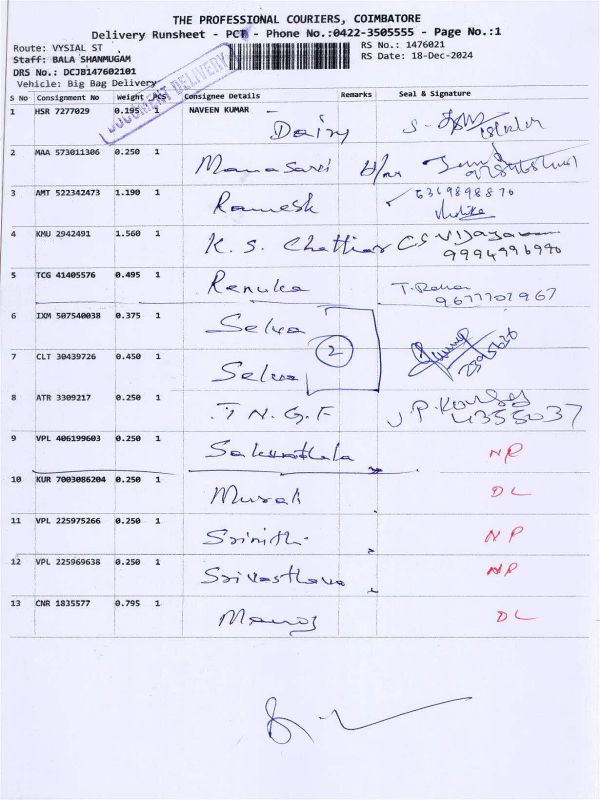 THE PROFESSIONAL COURIERS, COIMBATORE
Delivery Runsheet - PCT - Phone No.:0422-3505555 - Page No.:1
Route: VYSIAL ST
RS No.: 1476021
Staff: BALA SHANMUGAM
RS Date: 18-Dec-2024
DRS No.: DCJB147602101
Vehicle: Big Bag Delivery
DOCUMENT DELIVERY
S No Consignment No Weight PCS Consignee Details Remarks Seal & Signature
1 HSR 7277029 0.195 1 NAVEEN KUMAR
Dairy
2 MAA 573011306 0.250 1
3 AMT 522342473 1.190 1 Ramesh
4 KMU 2942491 1.560 1 K. S. Chettiar CS Vijaya
9994996990
5 TCG 41405576 0.495 1 Renuka
9677702967
6 IXM 507540038 0.375 1 Selva
2
7 CLT 30439726 0.450 1 Selva
8 ATR 3309217 0.250 1 T N G F J.P.
4355037
9 VPL 406199603 0.250 1 Sakunthala NP
10 KUR 7003086204 0.250 1 Murali DL
11 VPL 225975266 0.250 1 Srinithi NP
12 VPL 225969638 0.250 1 Srivasthava NP
13 CNR 1835577 0.795 1 Manoj DL